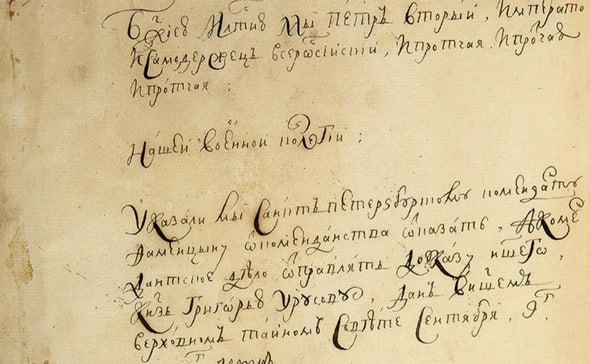 Бжиею Млтию Мы Петръ Вторый, Императо
И Самодержецъ всеросиский, И протчая И протчая
И протчая :
Нашей военной колегии ;
Указали мы Санктъ петерзбургскому коменданту
от комендантства отказать, А коме
дантское дело отправлять до указу ншего,
Кнзь Григорью Урусову, Данъ в ншемъ
верховномъ тайномъ Совете Сентября, 9г